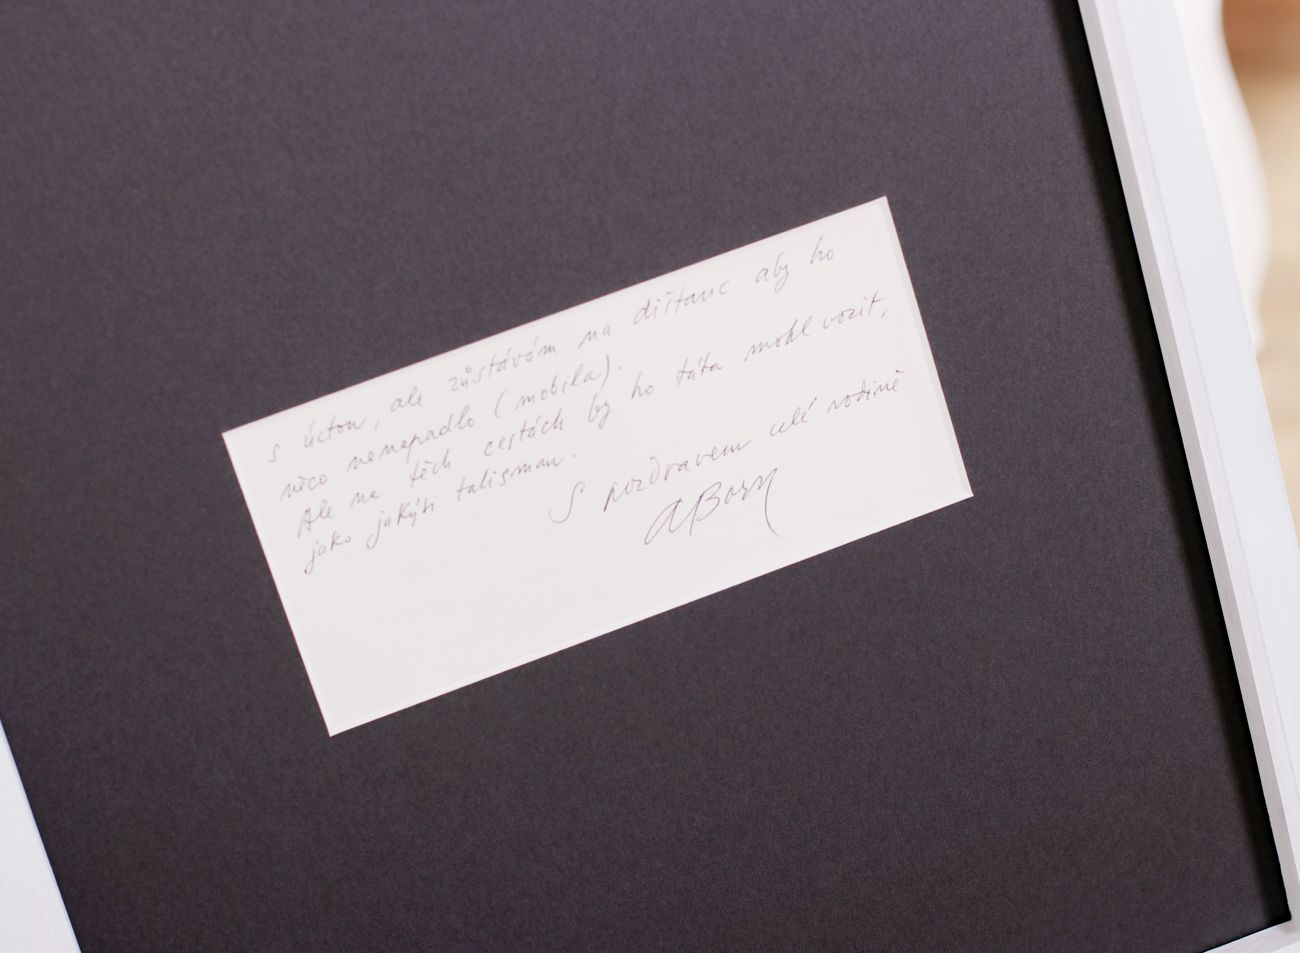 s úctou, ale zůstávám na distanc aby ho
něco nenapadlo (mobila).
Ale na těch cestách by ho táta mohl vozit,
jako jakýsi talisman.
S pozdravem celé rodině
ABorn